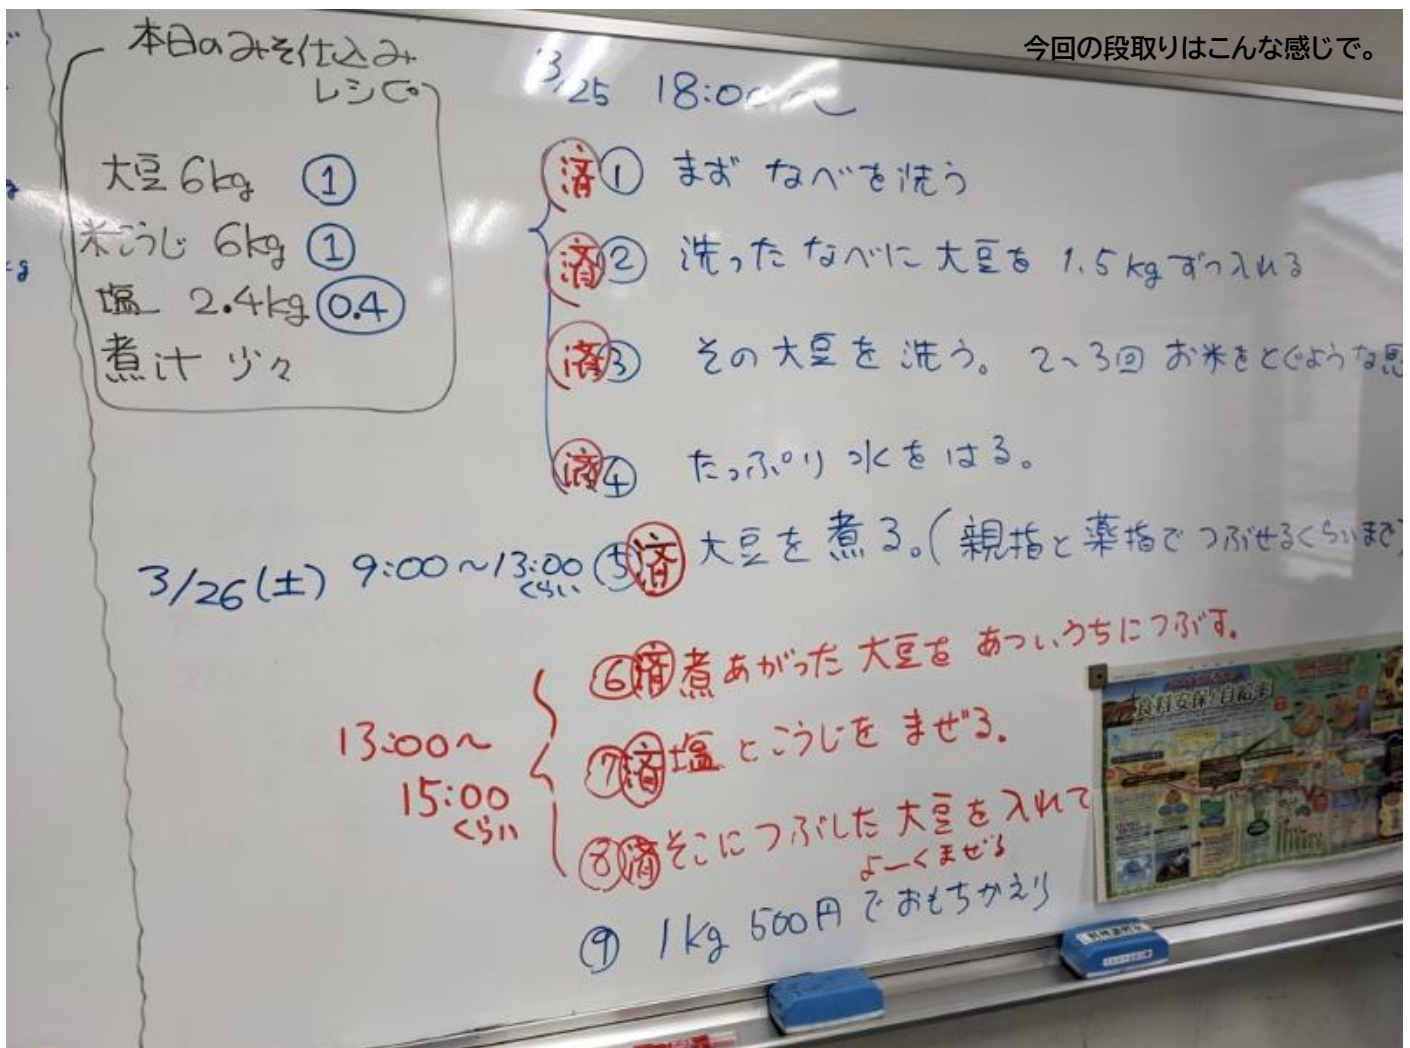 今回の段取りはこんな感じで。
本日のみそ仕込み
レシピ
大豆 6kg ①
米こうじ 6kg ①
塩 2.4kg 0.4
煮汁 少々
3/25 18:00〜
済① まず なべを洗う
済② 洗った なべに 大豆を 1.5kg ずつ入れる
済③ その大豆を洗う。2〜3回 お米をとぐような
済④ たっぷり水をはる。
3/26(土) 9:00〜13:00 ⑤済 大豆を煮る。(親指と薬指でつぶせるくらいまで)
くらい
⑥済 煮あがった 大豆を あついうちにつぶす。
13:00〜
15:00
くらい
⑦済 塩とこうじを まぜる。
⑧済 そこにつぶした 大豆を入れて
よーくまぜる
⑨ 1kg 500円でおもちかえり
食料安保!自給率